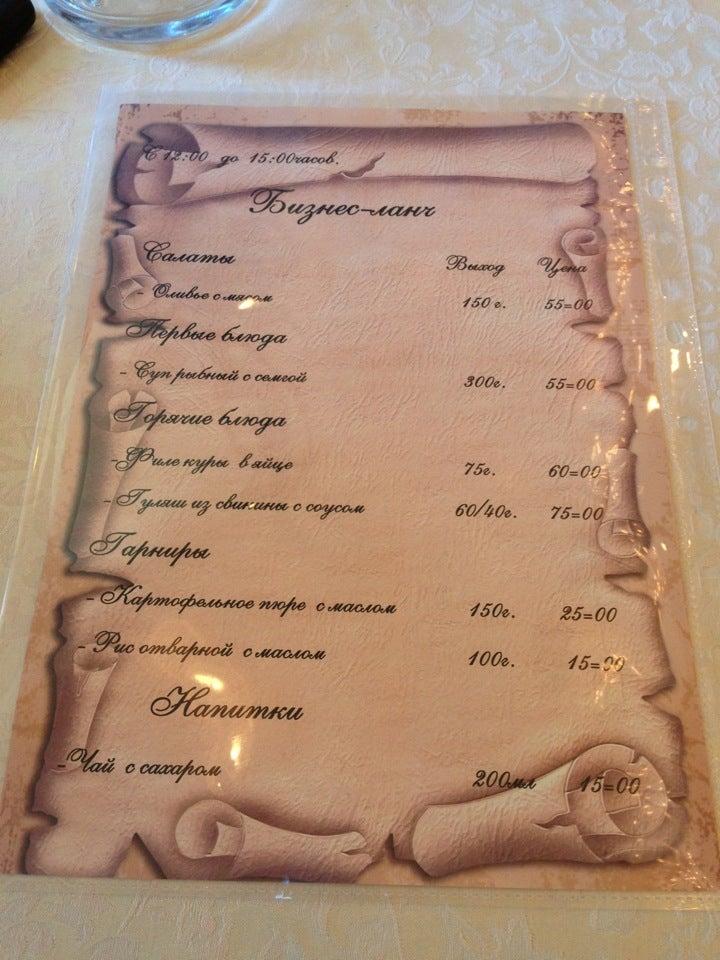 С 12:00 до 15:00часов.
Бизнес-ланч
Салаты Выход Цена
- Оливье с мясом 150 г. 55=00
Первые блюда
- Суп рыбный с семгой 300г. 55=00
Горячие блюда
- Филе куры в яйце 75г. 60=00
- Гуляш из свинины с соусом 60/40г. 75=00
Гарниры
- Картофельное пюре с маслом 150г. 25=00
- Рис отварной с маслом 100г. 15=00
Напитки
- Чай с сахаром 200мл 15=00